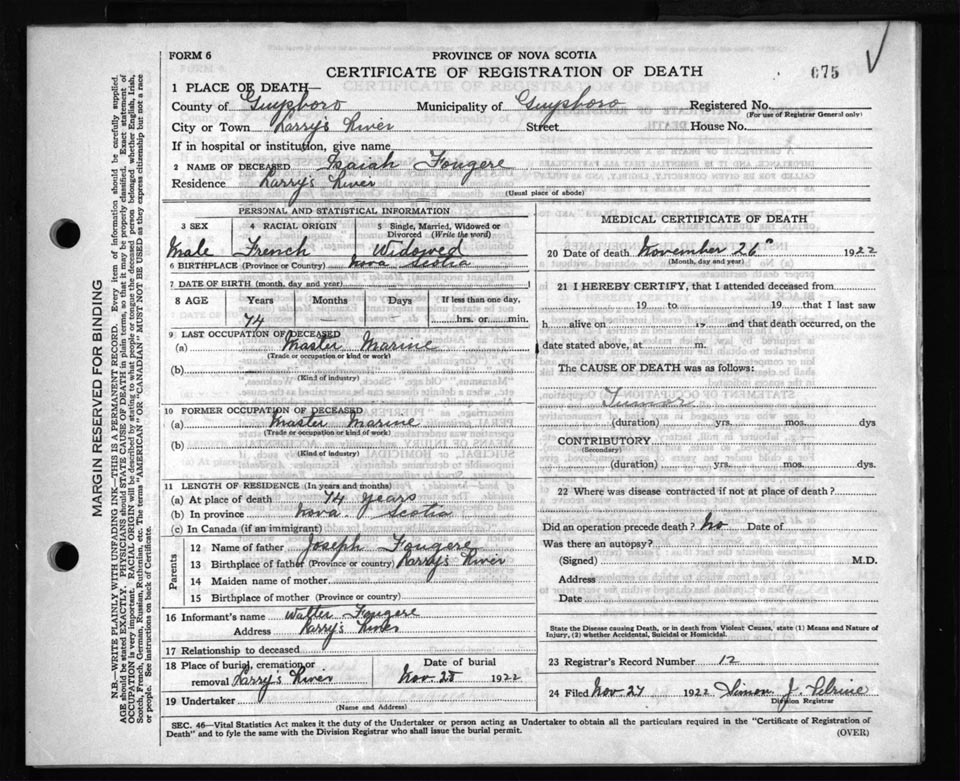 FORM 6
PROVINCE OF NOVA SCOTIA
CERTIFICATE OF REGISTRATION OF DEATH
675
1 PLACE OF DEATH—
County of Guysboro Municipality of Guysboro Registered No.
(For use of Registrar General only)
City or Town Larry's River Street House No.
If in hospital or institution, give name
2 NAME OF DECEASED Isaiah Fougere
Residence Larry's River
(Usual place of abode)
PERSONAL AND STATISTICAL INFORMATION
3 SEX 4 RACIAL ORIGIN 5 Single, Married, Widowed or Divorced (Write the word)
Male French Widowed
6 BIRTHPLACE (Province or Country) Nova Scotia
7 DATE OF BIRTH (month, day and year)
8 AGE Years Months Days If less than one day,
74 hrs. or min.
9 LAST OCCUPATION OF DECEASED
(a) Master Marine
(Trade or occupation or kind or work)
(b)
(Kind of industry)
10 FORMER OCCUPATION OF DECEASED
(a) Master Marine
(Trade or occupation or kind or work)
(b)
(Kind of industry)
11 LENGTH OF RESIDENCE (In years and months)
(a) At place of death 74 years
(b) In province Nova Scotia
(c) In Canada (if an immigrant)
Parents
12 Name of father Joseph Fougere
13 Birthplace of father (Province or country) Larry's River
14 Maiden name of mother
15 Birthplace of mother (Province or country)
16 Informant's name Walter Fougere
Address Larry's River
17 Relationship to deceased
18 Place of burial, cremation or Date of burial
removal Larry's River Nov. 28 1922
19 Undertaker
(Name and Address)
MEDICAL CERTIFICATE OF DEATH
20 Date of death November 26th 1922
(Month, day and year)
21 I HEREBY CERTIFY, that I attended deceased from
19 to 19 that I last saw
h alive on 19 and that death occurred, on the
date stated above, at m.
The CAUSE OF DEATH was as follows:
Tumor
(duration) yrs. mos. dys
CONTRIBUTORY
(Secondary)
(duration) yrs. mos. dys.
22 Where was disease contracted if not at place of death?
Did an operation precede death? No Date of
Was there an autopsy?
(Signed) M.D.
Address
Date
State the Disease causing Death, or in death from Violent Causes, state (1) Means and Nature of
Injury, (2) whether Accidental, Suicidal or Homicidal.
23 Registrar's Record Number 12
24 Filed Nov. 27 1922 Simon J. Pelrine
Division Registrar
SEC. 46—Vital Statistics Act makes it the duty of the Undertaker or person acting as Undertaker to obtain all the particulars required in the "Certificate of Registration of
Death" and to fyle the same with the Division Registrar who shall issue the burial permit.
(OVER)
MARGIN RESERVED FOR BINDING
N.B.—WRITE PLAINLY WITH UNFADING INK—THIS IS A PERMANENT RECORD. Every item of information should be carefully supplied.
AGE should be stated EXACTLY. PHYSICIANS should STATE CAUSE OF DEATH in plain terms, so that it may be properly classified. Exact statement of
OCCUPATION is very important. RACIAL ORIGIN will be described by stating to what people or tongue the deceased person belonged whether English, Irish,
Scotch, French, German, Russian, Ruthenian, etc. The terms "AMERICAN" OR "CANADIAN" MUST NOT BE USED as they express citizenship but not a race
or people. See instructions on back of Certificate.